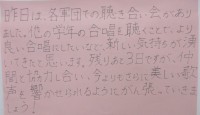 昨日は、各軍団での聴き合い会があり
ました。他の学年の合唱を聴くことで、より
良い合唱にしたいなど、新しい気持ちがわい
てきたと思います。残りあと3日ですが、仲
間と協力し合い、今よりもさらに美しい歌
声を響かせられるようにがんばっていきまし
ょう!